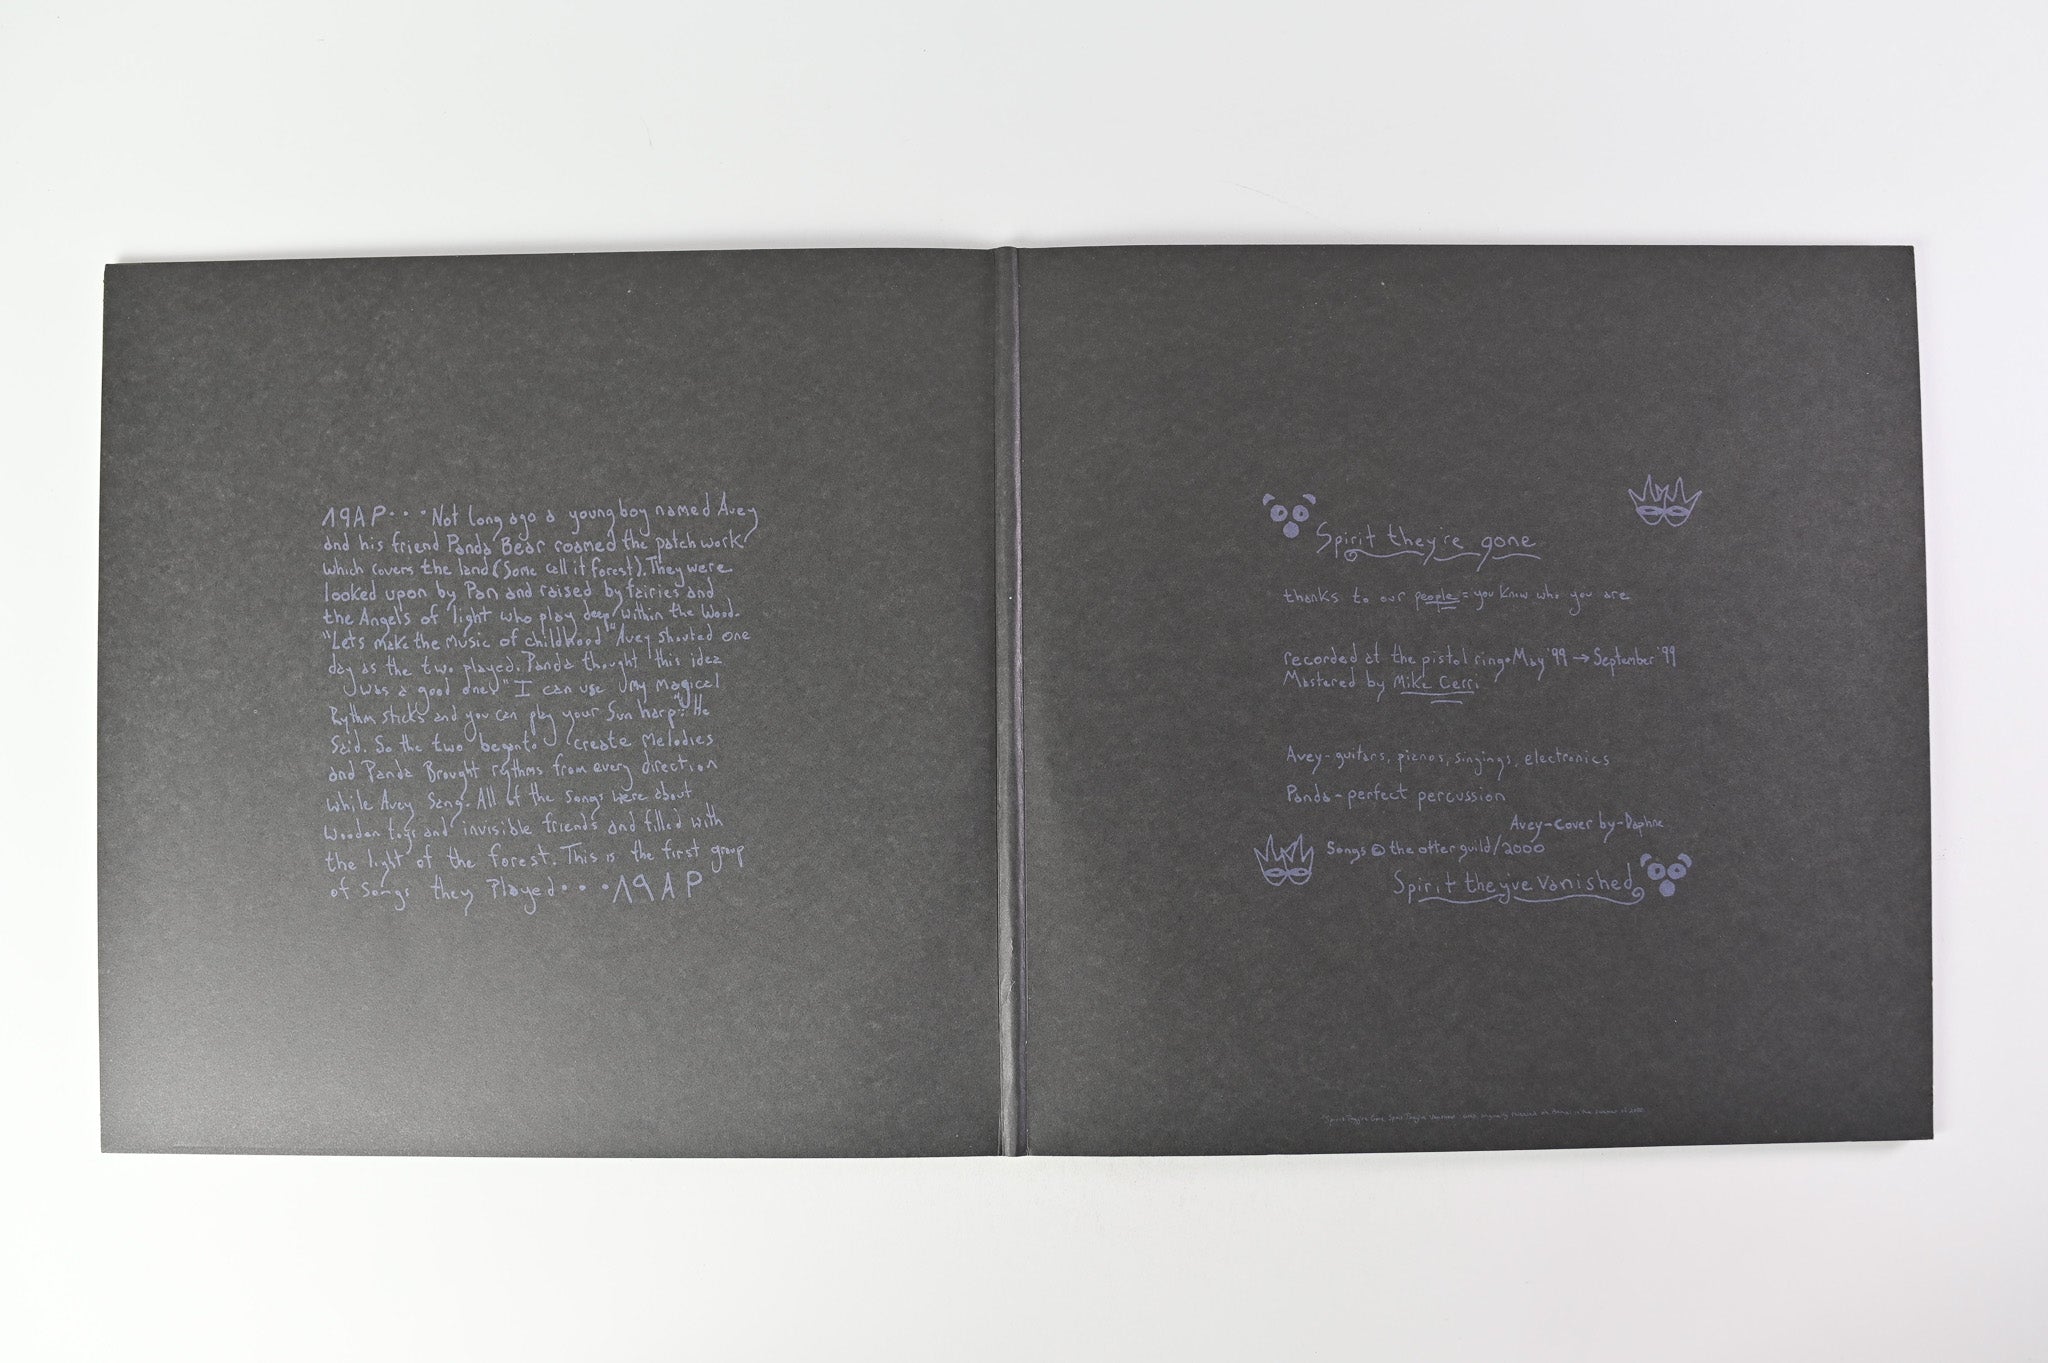 19AP...Not long ago a young boy named Avey
and his friend Panda Bear roamed the patchwork
which covers the land (Some call it forest). They were
looked upon by Pan and raised by fairies and
the Angels of light who play deep within the Wood.
"Lets make the music of childhood" Avey shouted one
day as the two played. Panda thought this idea
was a good one. "I can use my magical
Rythm sticks and you can play your Sun harp". He
Said. So the two began to create Melodies
and Panda Brought rythms from every direction
while Avey Sang. All of the songs were about
Wooden toys and invisible friends and filled with
the light of the forest. This is the first group
of songs they Played...19AP
Spirit they're gone
thanks to our people = you know who you are
recorded at the pistol ring • May '99 → September '99
Mastered by Mike Cerri
Avey-guitars, pianos, singings, electronics
Panda-perfect percussion
Avey-Cover by-Daphne
Songs © the otter guild/2000
Spirit they've vanished